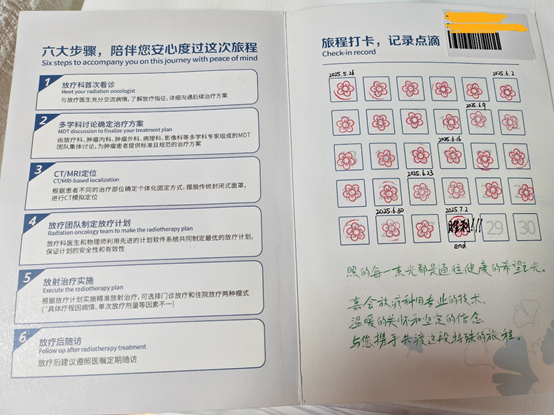 六大步骤，陪伴您安心度过这次旅程
Six steps to accompany you on this journey with peace of mind
1
放疗科首次看诊
Meet your radiation oncologist
与放疗医生充分交流病情，了解放疗指征，详细沟通后续治疗方案
2
多学科讨论确定治疗方案
MDT discussion to finalize your treatment plan
由放疗科、肿瘤内科、肿瘤外科、病理科、影像科等多学科专家组成的MDT
团队集体讨论，为肿瘤患者提供标准且规范的治疗方案
3
CT/MRI定位
CT/MRI-based localization
根据患者不同的治疗部位确定个体化固定方式，摆脱传统封闭式面罩，
进行CT模拟定位
4
放疗团队制定放疗计划
Radiation oncology team to make the radiotherapy plan
放疗科医生和物理师利用先进的计划软件系统共同制定最优的放疗计划，
保证计划的安全性和有效性
5
放射治疗实施
Execute the radiotherapy plan
根据放疗计划实施精准放射治疗，可选择门诊放疗和住院放疗两种模式
（*具体疗程因病情、单次放疗剂量等因素不一）
6
放疗后随访
Follow up after radiotherapy treatment
放疗后建议遵照医嘱定期随访
旅程打卡，记录点滴
Check-in record
2025.5.26
2025.6.2
2025.6.9
2025.6.16
2025.6.23
2025.6.30
2025.7.2
胜利!!!
29
30
end
照的每一束光都是通往健康的希望之光。
嘉会放疗科用专业的技术、
温暖的关怀和坚定的信念，
与您携手共渡这段特殊的旅程。